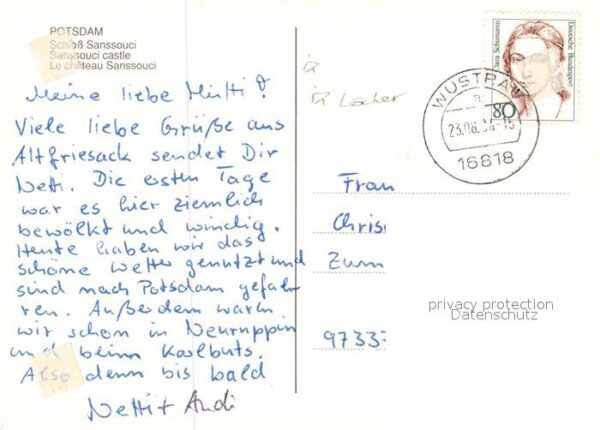 POTSDAM
Schloß Sanssouci
Sanssouci castle
Le château Sanssouci
Meine liebe Mutti!
Viele liebe Grüße aus
Altfriesack sendet Dir
Netti. Die ersten Tage
war es hier ziemlich
bewölkt und windig.
Heute haben wir das
schöne Wetter genutzt und
sind nach Potsdam gefah
ren. Außerdem waren
wir schon in Neuruppin
und beim Kalbuts.
Also denn bis bald
Netti + Andi
Löcher
Clara Schumann
Deutsche Bundespost
80
WUSTRAU
a
23.06.94-15
16818
Frau
Chris
Zum
9733
privacy protection
Datenschutz